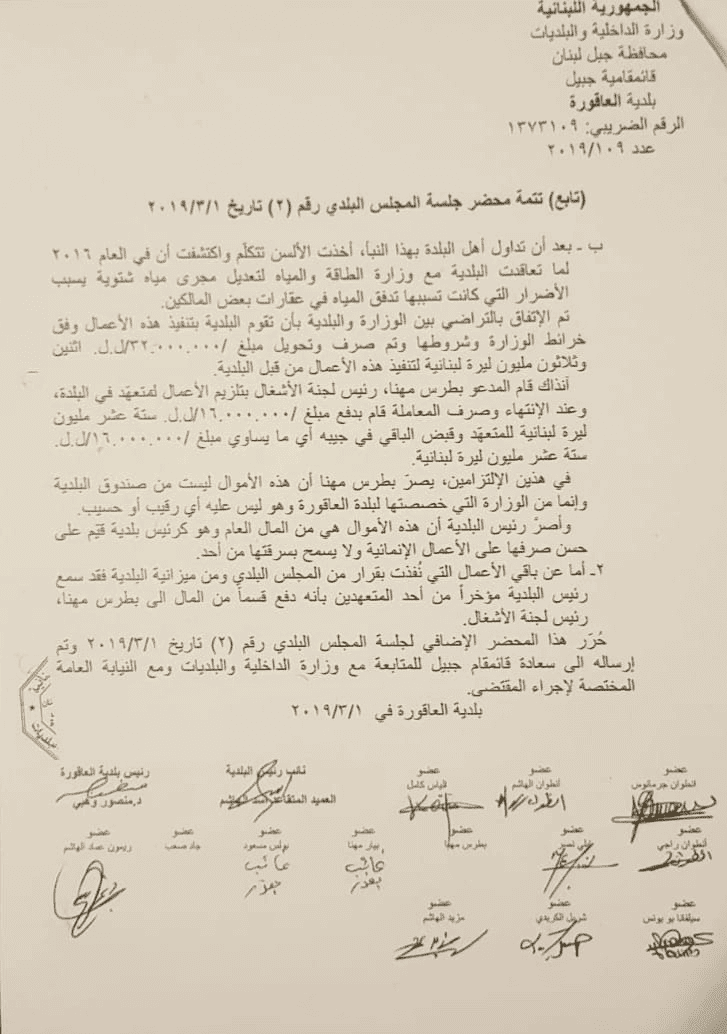 الجمهورية اللبنانية
وزارة الداخلية والبلديات
محافظة جبل لبنان
قائمقامية جبيل
بلدية العاقورة
الرقم الضريبي: ١٣٧٣١٠٩
عدد ٢٠١٩/١٠٩
(تابع) تتمة محضر جلسة المجلس البلدي رقم (٢) تاريخ ٢٠١٩/٣/١
ب - بعد أن تداول أهل البلدة بهذا النبأ، أخذت الألسن تتكلّم واكتشفت أن في العام ٢٠١٦
لما تعاقدت البلدية مع وزارة الطاقة والمياه لتعديل مجرى مياه شتوية يسبب
الأضرار التي كانت تسببها تدفق المياه في عقارات بعض المالكين.
تم الإتفاق بالتراضي بين الوزارة والبلدية بأن تقوم البلدية بتنفيذ هذه الأعمال وفق
خرائط الوزارة وشروطها وتم صرف وتحويل مبلغ /٣٢.٠٠٠.٠٠٠/ل.ل. اثنين
وثلاثون مليون ليرة لبنانية لتنفيذ هذه الأعمال من قبل البلدية.
آنذاك قام المدعو بطرس مهنا، رئيس لجنة الأشغال بتلزيم الأعمال لمتعهّد في البلدة،
وعند الإنتهاء وصرف المعاملة قام بدفع مبلغ /١٦.٠٠٠.٠٠٠/ل.ل. ستة عشر مليون
ليرة لبنانية للمتعهّد وقبض الباقي في جيبه أي ما يساوي مبلغ /١٦.٠٠٠.٠٠٠/ل.ل.
ستة عشر مليون ليرة لبنانية.
في هذين الإلتزامين، يصرّ بطرس مهنا أن هذه الأموال ليست من صندوق البلدية
وإنما من الوزارة التي خصصتها لبلدة العاقورة وهو ليس عليه أي رقيب أو حسيب.
وأصرَّ رئيس البلدية أن هذه الأموال هي من المال العام وهو كرئيس بلدية قيّم على
حسن صرفها على الأعمال الإنمائية ولا يسمح بسرقتها من أحد.
٢- أما عن باقي الأعمال التي نُفذت بقرار من المجلس البلدي ومن ميزانية البلدية فقد سمع
رئيس البلدية مؤخراً من أحد المتعهدين بأنه دفع قسماً من المال الى بطرس مهنا،
رئيس لجنة الأشغال.
حُرّر هذا المحضر الإضافي لجلسة المجلس البلدي رقم (٢) تاريخ ٢٠١٩/٣/١ وتم
إرساله الى سعادة قائمقام جبيل للمتابعة مع وزارة الداخلية والبلديات ومع النيابة العامة
المختصة لإجراء المقتضى.
بلدية العاقورة في ٢٠١٩/٣/١
عضو عضو عضو نائب رئيس البلدية رئيس بلدية العاقورة
انطوان جرمانوس أنطوان الهاشم الياس كامل العميد المتقاعد الهاشم د.منصور وهبي
عضو عضو عضو عضو عضو عضو عضو
أنطوان راجي علي نصر بطرس مهنا بيار مهنا بولس مسعود جاد صعب ريمون عماد الهاشم
غائب بعذر غائب بعذر
عضو عضو عضو
سيلفانا بو يونس شربل الكريدي مزيد الهاشم